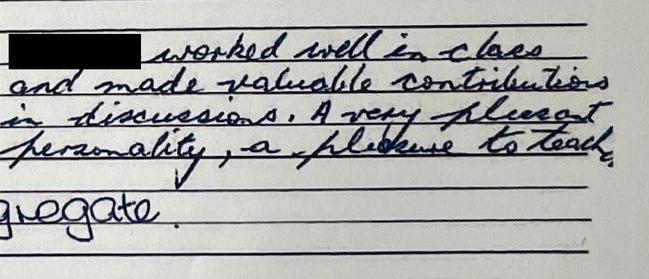 worked well in class
and made valuable contributions
in discussions. A very plesant
personality, a pleasure to teach.
gregate.